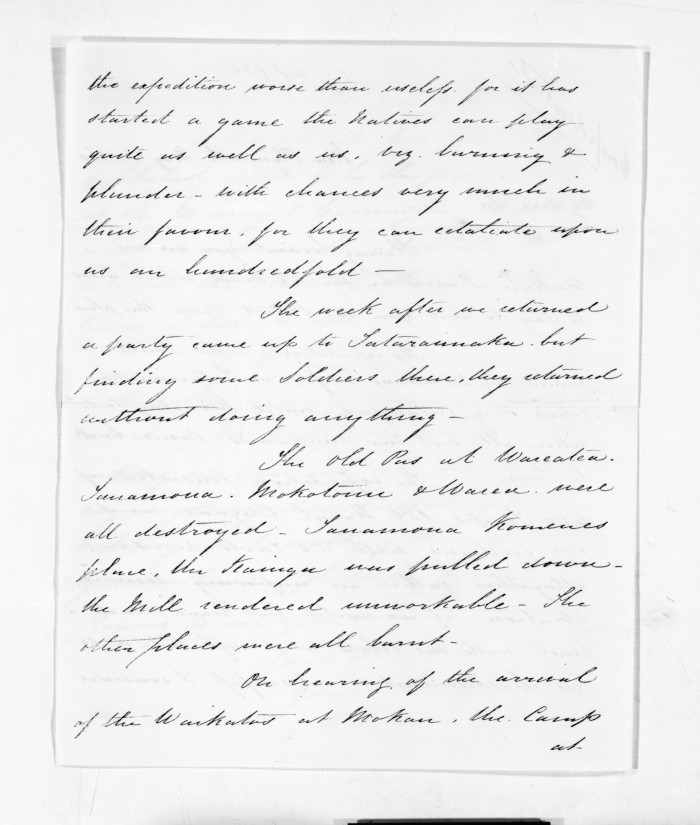 the expedition worse than useless. for it has
started a game the Natives can play
quite as well as us, viz. burning &
plunder - with chances very much in
their favour, for they can retaliate upon
us an hundredfold —
The week after we returned
a party came up to Tataraimaka. but
finding some Soldiers there, they returned
without doing anything -
The old Pas at Wareatea.
Tanamona. Mokotunu & Warea. were
all destroyed - Tanamona Komenes
place, the Kainga was pulled down -
the Mill rendered unworkable - The
other places were all burnt -
On hearing of the arrival
of the Waikatos at Mokau, the Camp
at